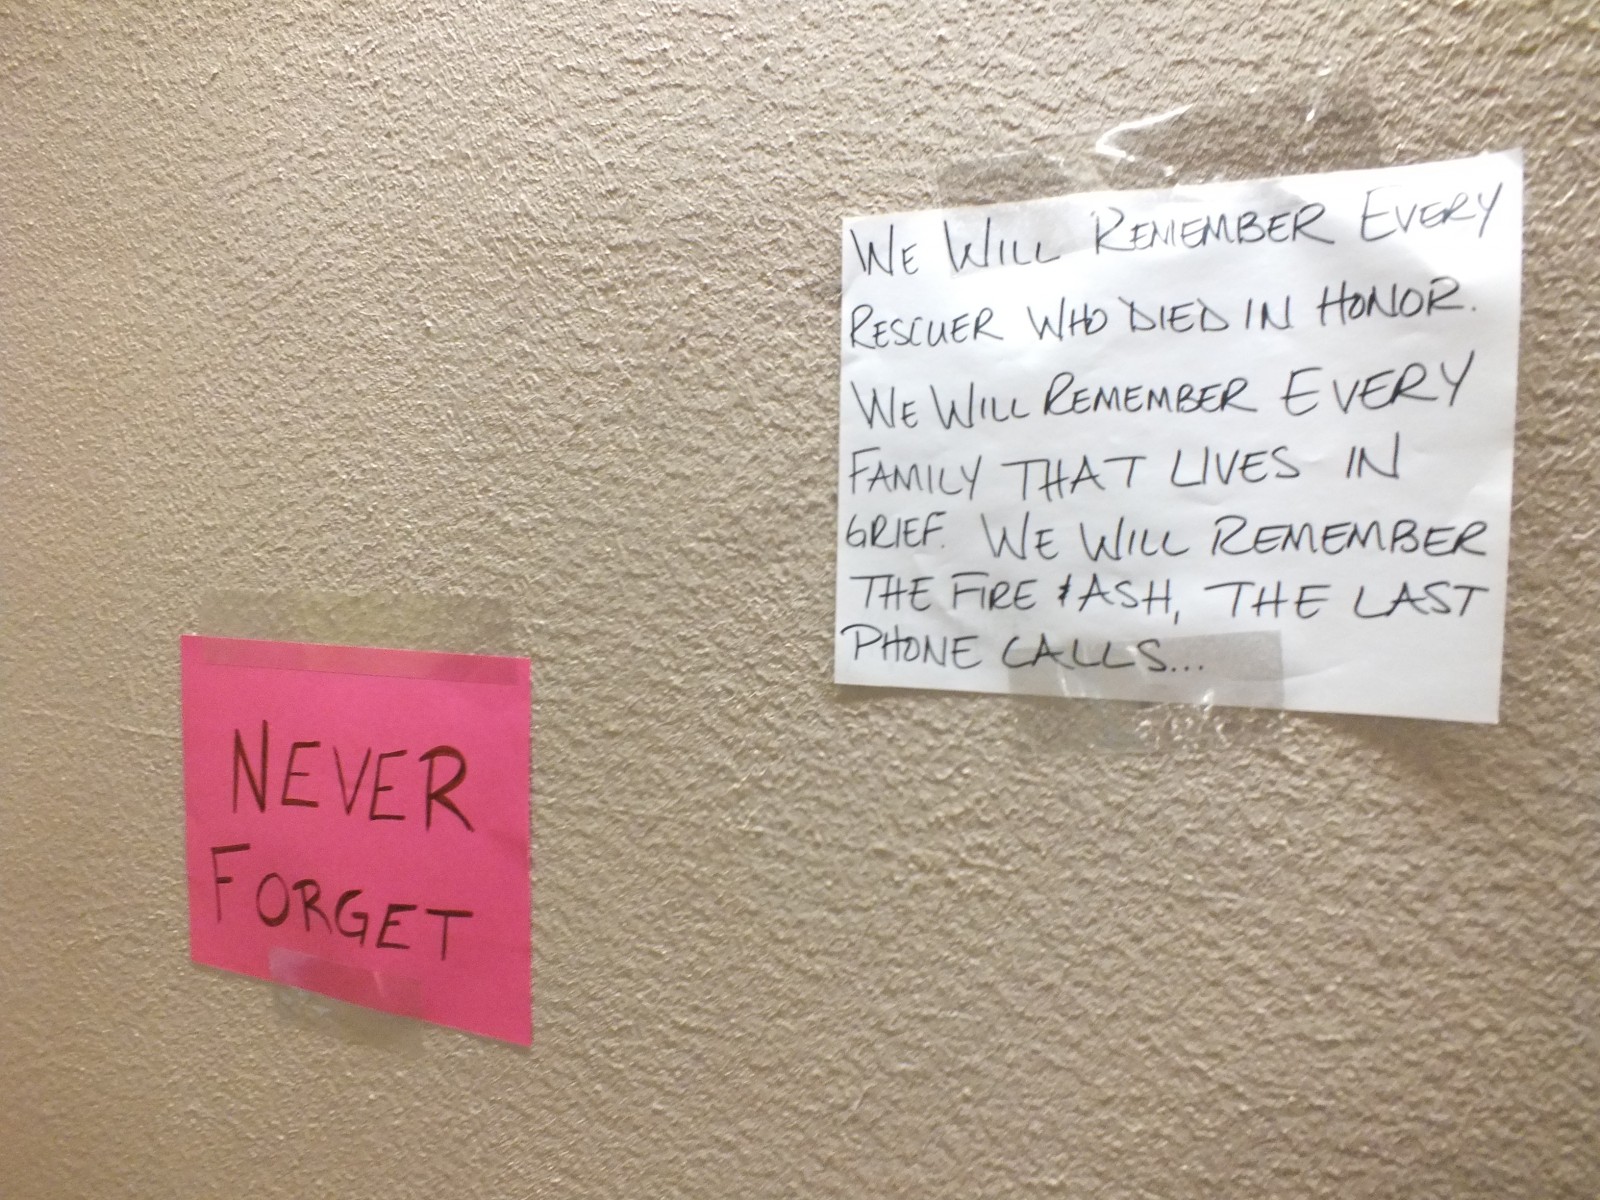 We Will Remember Every
Rescuer Who Died in Honor.
We Will Remember Every
Family that lives in
Grief. We Will Remember
the Fire & Ash, the last
Phone Calls...
Never
Forget